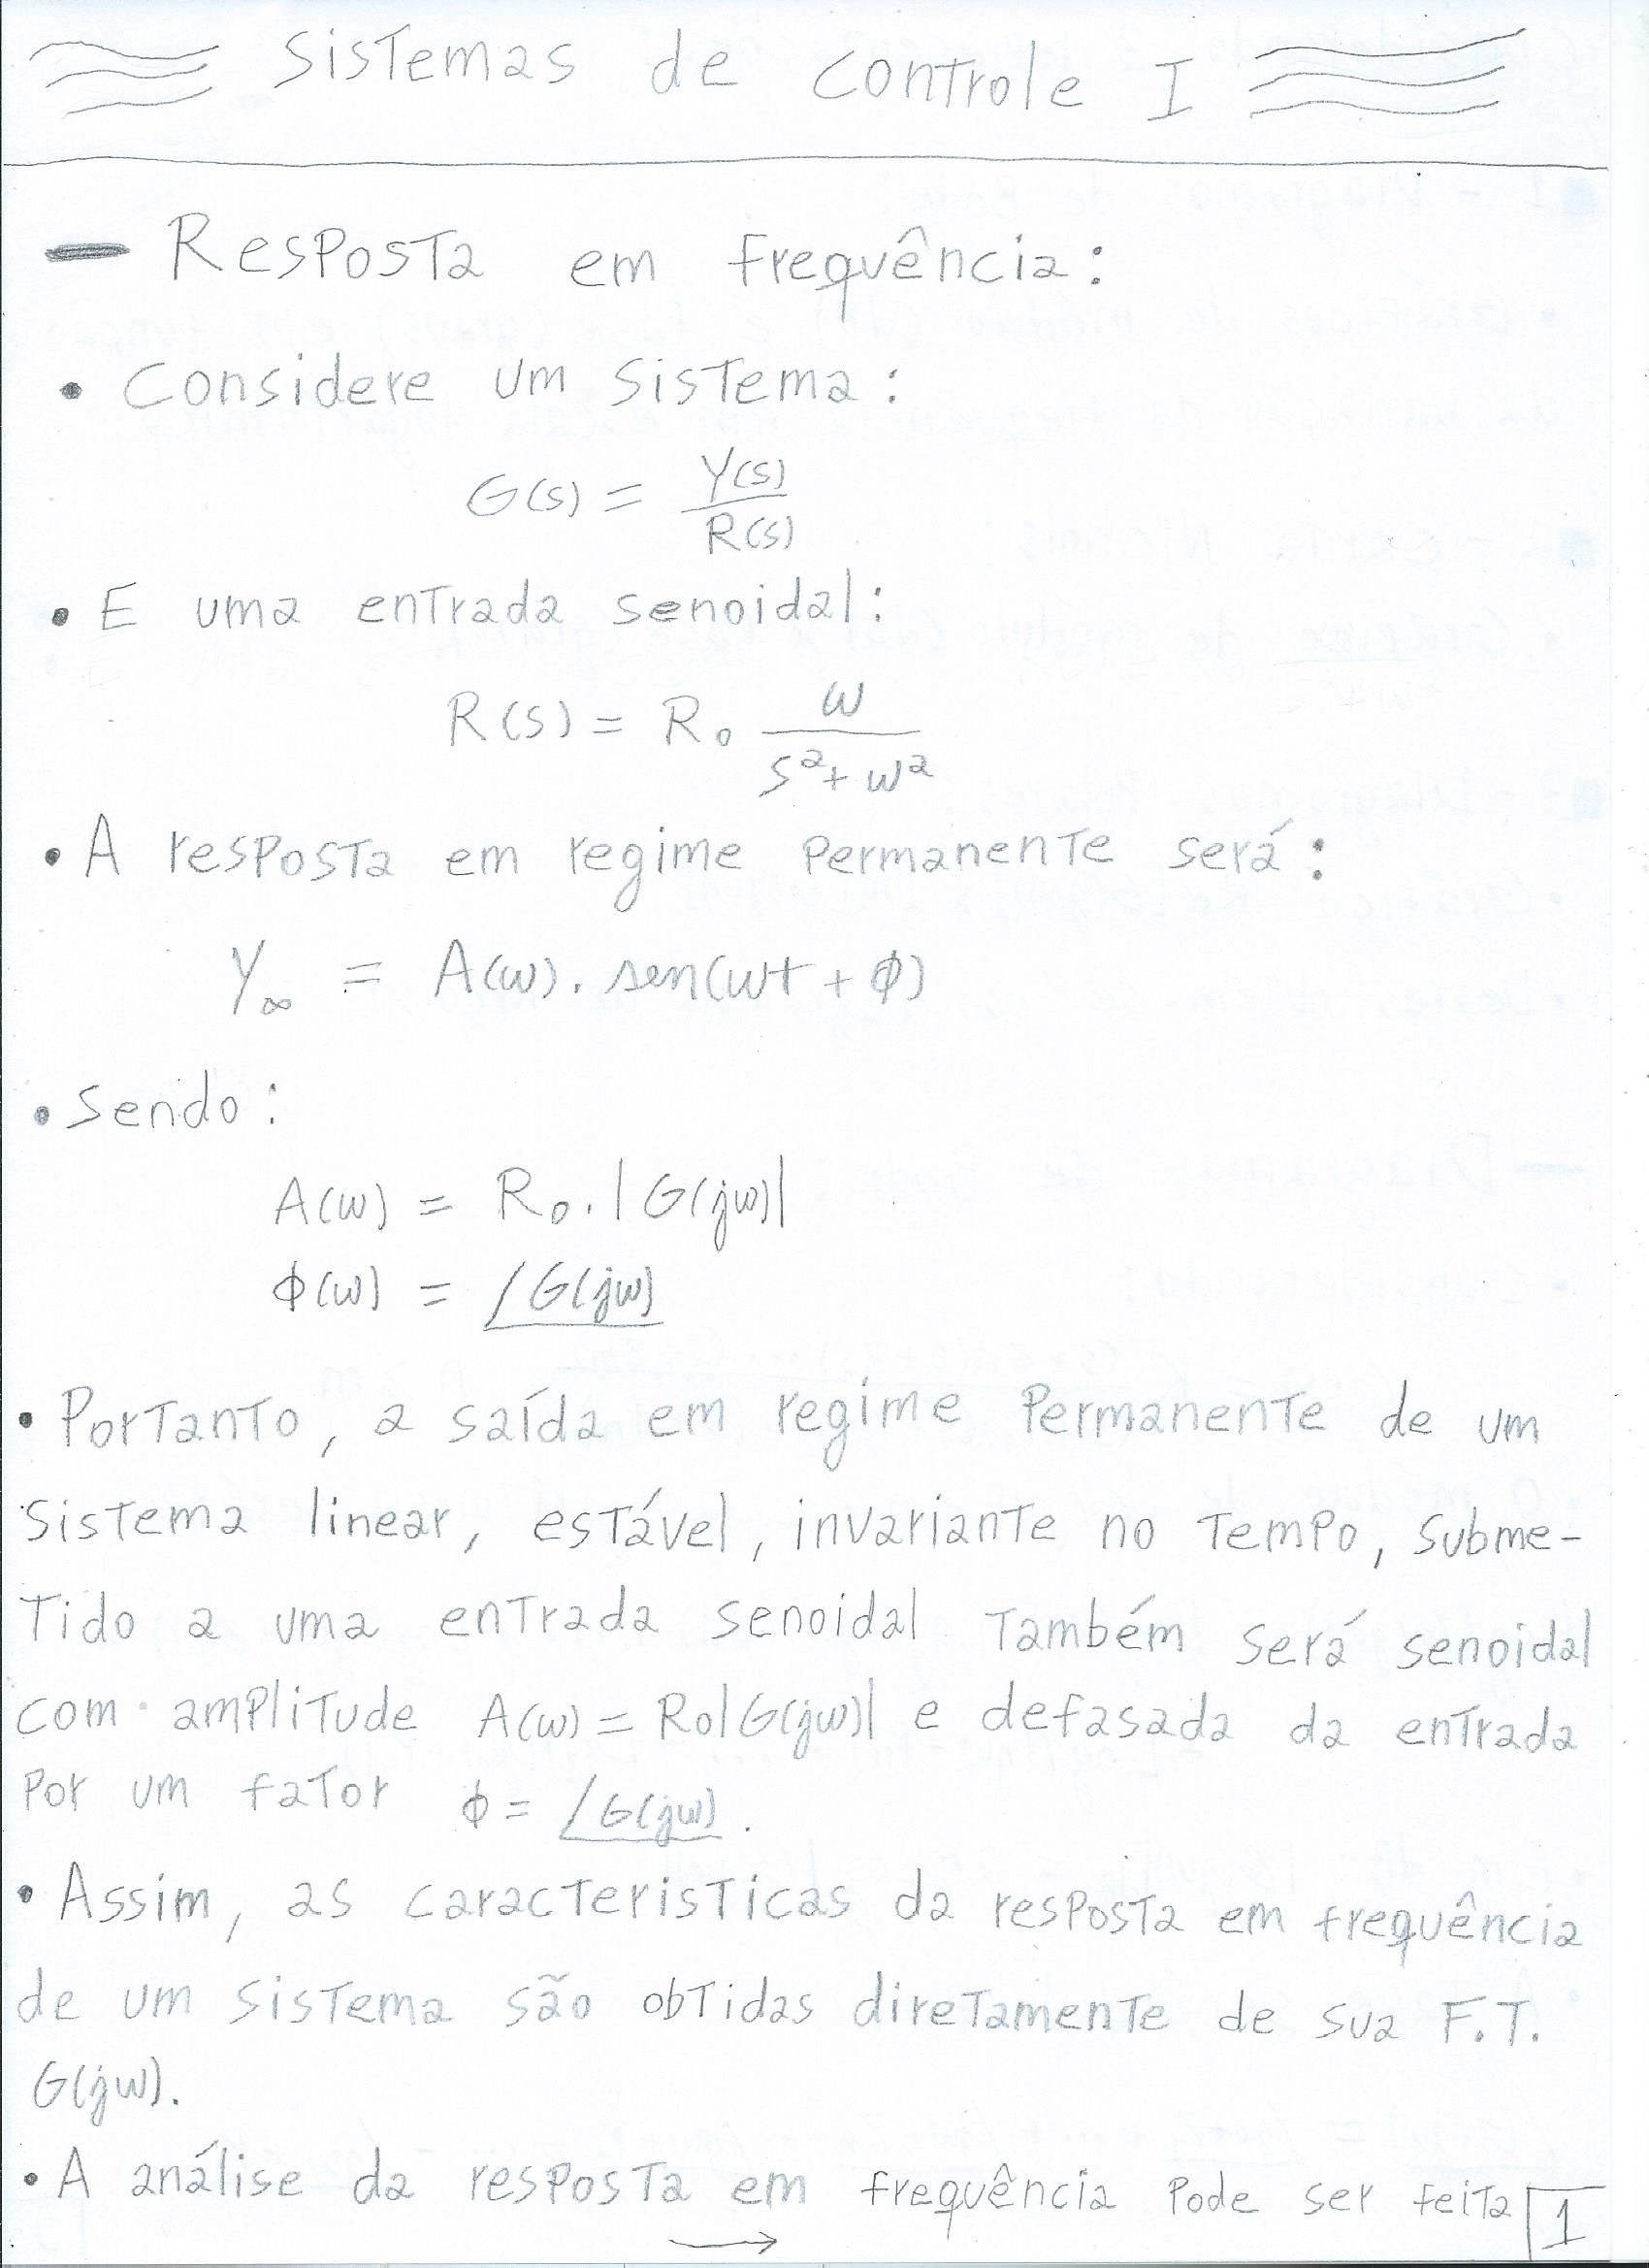 Sistemas de Controle I
— Resposta em frequência:
• Considere um sistema:
G(s) = Y(s)/R(s)
• E uma entrada senoidal:
R(s) = R₀ ω/(s²+ω²)
• A resposta em regime permanente será:
Y∞ = A(ω). sen(ωt + ϕ)
• Sendo:
A(ω) = R₀.|G(jω)|
ϕ(ω) = ∠G(jω)
• Portanto, a saída em regime permanente de um
sistema linear, estável, invariante no tempo, subme-
tido a uma entrada senoidal também será senoidal
com amplitude A(ω) = R₀|G(jω)| e defasada da entrada
por um fator ϕ = ∠G(jω).
• Assim, as caracteristicas da resposta em frequência
de um sistema são obtidas diretamente de sua F.T.
G(jω).
• A análise da resposta em frequência pode ser feita
→
1